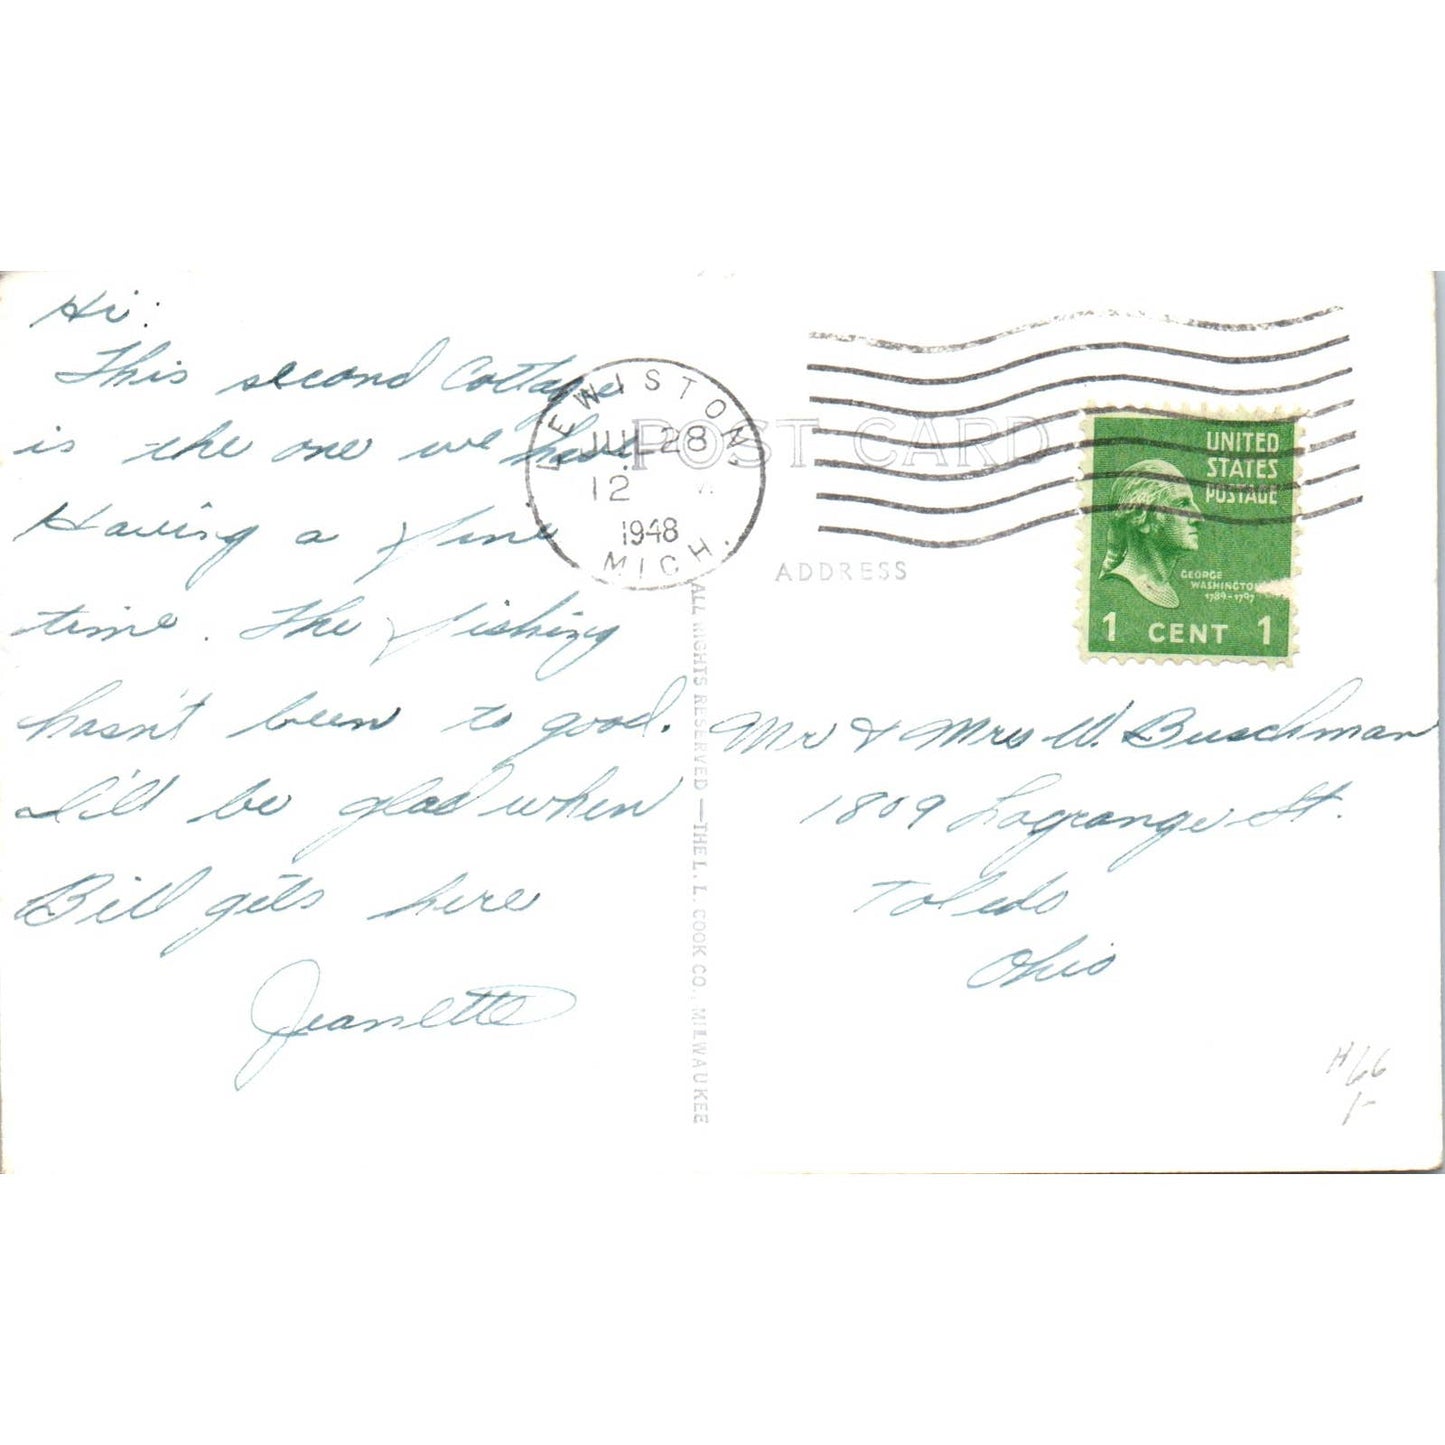 Hi:
This second Cottage
is the one we have
Having a fine
time. The fishing
hasn't been to good.
I'll be glad when
Bill gets here
Jeanette
LEWISTON,
JUL 28
12 M
1948
MICH.
POST CARD
ADDRESS
UNITED
STATES
POSTAGE
GEORGE
WASHINGTON
1789-1797
1 CENT 1
ALL RIGHTS RESERVED—THE L. L. COOK CO., MILWAUKEE
Mr & Mrs W. Buschman
1809 Lagrange St.
Toledo
Ohio
66
1-